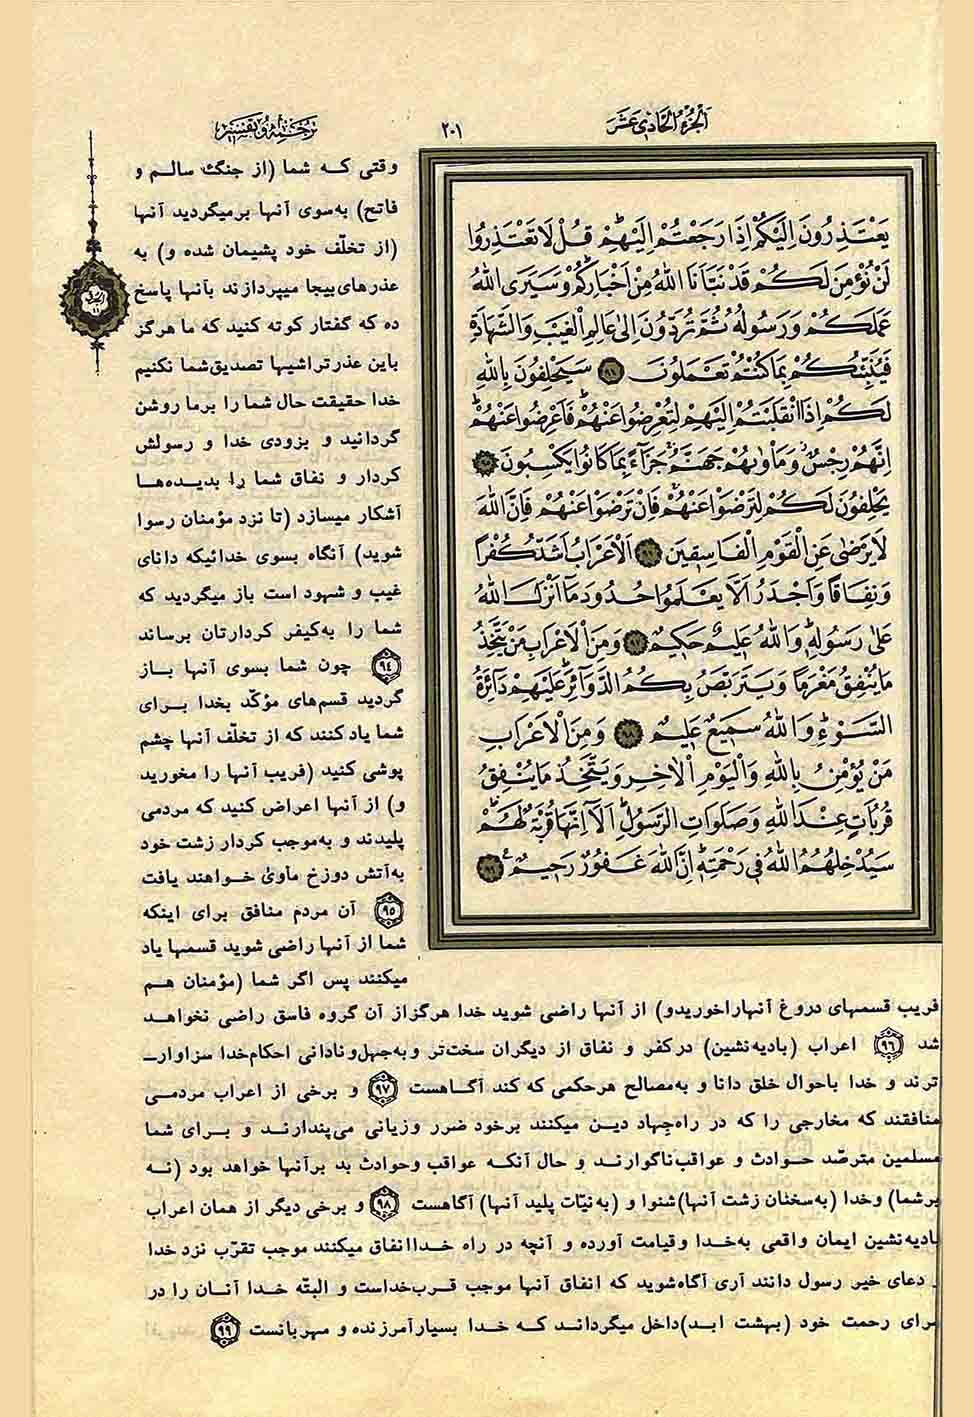 الجزء الحادی عشر
۲۰۱
ترجمه و تفسیر
یَعْتَذِرُونَ اِلَیْکُمْ اِذَا رَجَعْتُمْ اِلَیْهِمْ قُلْ لَا تَعْتَذِرُوا
لَنْ نُؤْمِنَ لَکُمْ قَدْ نَبَّاَنَا اللهُ مِنْ اَخْبَارِکُمْ وَسَیَرَی اللهُ
عَمَلَکُمْ وَرَسُولُهُ ثُمَّ تُرَدُّونَ اِلیٰ عَالِمِ الْغَیْبِ وَالشَّهَادَةِ
فَیُنَبِّئُکُمْ بِمَا کُنْتُمْ تَعْمَلُونَ ۹٤ سَیَحْلِفُونَ بِاللهِ
لَکُمْ اِذَا انْقَلَبْتُمْ اِلَیْهِمْ لِتُعْرِضُوا عَنْهُمْ فَاَعْرِضُوا عَنْهُمْ
اِنَّهُمْ رِجْسٌ وَمَاْوٰیهُمْ جَهَنَّمُ جَزَآءً بِمَا کَانُوا یَکْسِبُونَ ۹۵
یَحْلِفُونَ لَکُمْ لِتَرْضَوْا عَنْهُمْ فَاِنْ تَرْضَوْا عَنْهُمْ فَاِنَّ اللهَ
لَا یَرْضیٰ عَنِ الْقَوْمِ الْفَاسِقِینَ ۹۶ اَلْاَعْرَابُ اَشَدُّ کُفْرًا
وَنِفَاقًا وَاَجْدَرُ اَلَّا یَعْلَمُوا حُدُودَ مَآ اَنْزَلَ اللهُ
عَلیٰ رَسُولِهِ وَاللهُ عَلِیمٌ حَکِیمٌ ۹۷ وَمِنَ الْاَعْرَابِ مَنْ یَتَّخِذُ
مَا یُنْفِقُ مَغْرَمًا وَیَتَرَبَّصُ بِکُمُ الدَّوَآئِرَ عَلَیْهِمْ دَآئِرَةُ
السَّوْءِ وَاللهُ سَمِیعٌ عَلِیمٌ ۹۸ وَمِنَ الْاَعْرَابِ
مَنْ یُؤْمِنُ بِاللهِ وَالْیَوْمِ الْاٰخِرِ وَیَتَّخِذُ مَا یُنْفِقُ
قُرُبَاتٍ عِنْدَ اللهِ وَصَلَوَاتِ الرَّسُولِ اَلَآ اِنَّهَا قُرْبَةٌ لَهُمْ
سَیُدْخِلُهُمُ اللهُ فِی رَحْمَتِهِ اِنَّ اللهَ غَفُورٌ رَحِیمٌ ۹۹
وقتی که شما (از جنگ سالم و
فاتح) به‌سوی آنها برمیگردید آنها
(از تخلّف خود پشیمان شده و) به
عذرهای بیجا میپردازند بآنها پاسخ
ده که گفتار کوته کنید که ما هرگز
باین عذرتراشیها تصدیق شما نکنیم
خدا حقیقت حال شما را برما روشن
گردانید و بزودی خدا و رسولش
کردار و نفاق شما را بدیده‌ها
آشکار میسازد (تا نزد مؤمنان رسوا
شوید) آنگاه بسوی خدائیکه دانای
غیب و شهود است باز میگردید که
شما را به‌کیفر کردارتان برساند
۹٤ چون شما بسوی آنها باز
گردید قسم‌های مؤکّد بخدا برای
شما یاد کنند که از تخلّف آنها چشم
پوشی کنید (فریب آنها را مخورید
و) از آنها اعراض کنید که مردمی
پلیدند و به‌موجب کردار زشت خود
به‌آتش دوزخ مأوی خواهند یافت
۹۵ آن مردم منافق برای اینکه
شما از آنها راضی شوید قسمها یاد
میکنند پس اگر شما (مؤمنان هم
فریب قسمهای دروغ آنهاراخوریدو) از آنها راضی شوید خدا هرگز از آن گروه فاسق راضی نخواهد
شد ۹۶ اعراب (بادیه‌نشین) درکفر و نفاق از دیگران سخت‌تر و به‌جهل و نادانی احکام خدا سزاوار-
ترند و خدا باحوال خلق دانا و به‌مصالح هرحکمی که کند آگاهست ۹۷ و برخی از اعراب مردمی
منافقند که مخارجی را که در راه‌جهاد دین میکنند برخود ضرر وزیانی می‌پندارند و برای شما
مسلمین مترصّد حوادث و عواقب ناگوارند و حال آنکه عواقب وحوادث بد برآنها خواهد بود (نه
برشما) وخدا (به‌سخنان زشت آنها) شنوا و (به‌نیّات پلید آنها) آگاهست ۹۸ و برخی دیگر از همان اعراب
بادیه‌نشین ایمان واقعی به‌خدا وقیامت آورده و آنچه در راه خداانفاق میکنند موجب تقرّب نزد خدا
و دعای خیر رسول دانند آری آگاه‌شوید که انفاق آنها موجب قرب‌خداست و البتّه خدا آنان را در
سرای رحمت خود (بهشت ابد) داخل میگرداند که خدا بسیارآمرزنده و مهربانست ۹۹